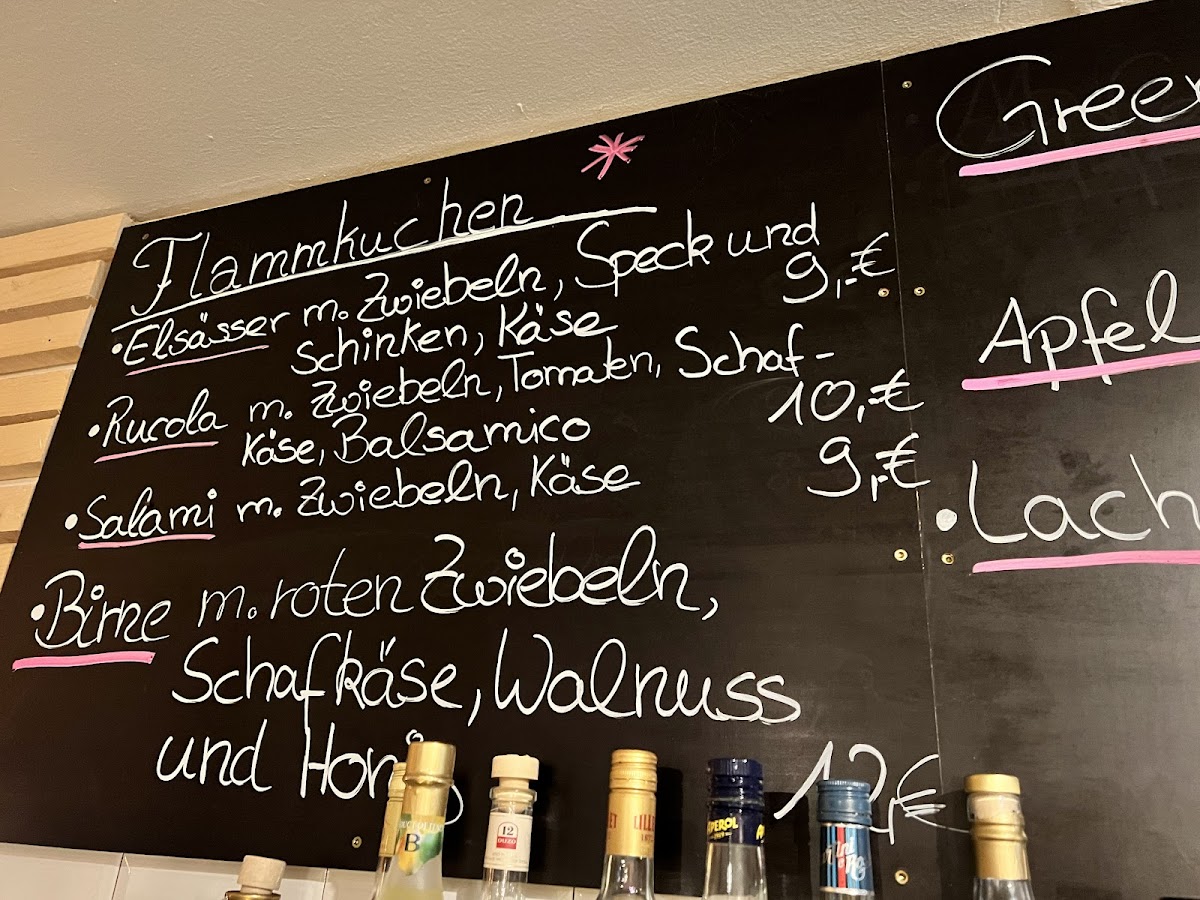 Flammkuchen
• Elsässer m. Zwiebeln, Speck und
Schinken, Käse 9,-€
• Rucola m. Zwiebeln, Tomaten, Schaf-
käse, Balsamico 10,-€
• Salami m. Zwiebeln, Käse 9,€
• Birne m. roten Zwiebeln,
Schafkäse, Walnuss
und Honig 12,€
Green
Apfel
• Lach
12
OUZO